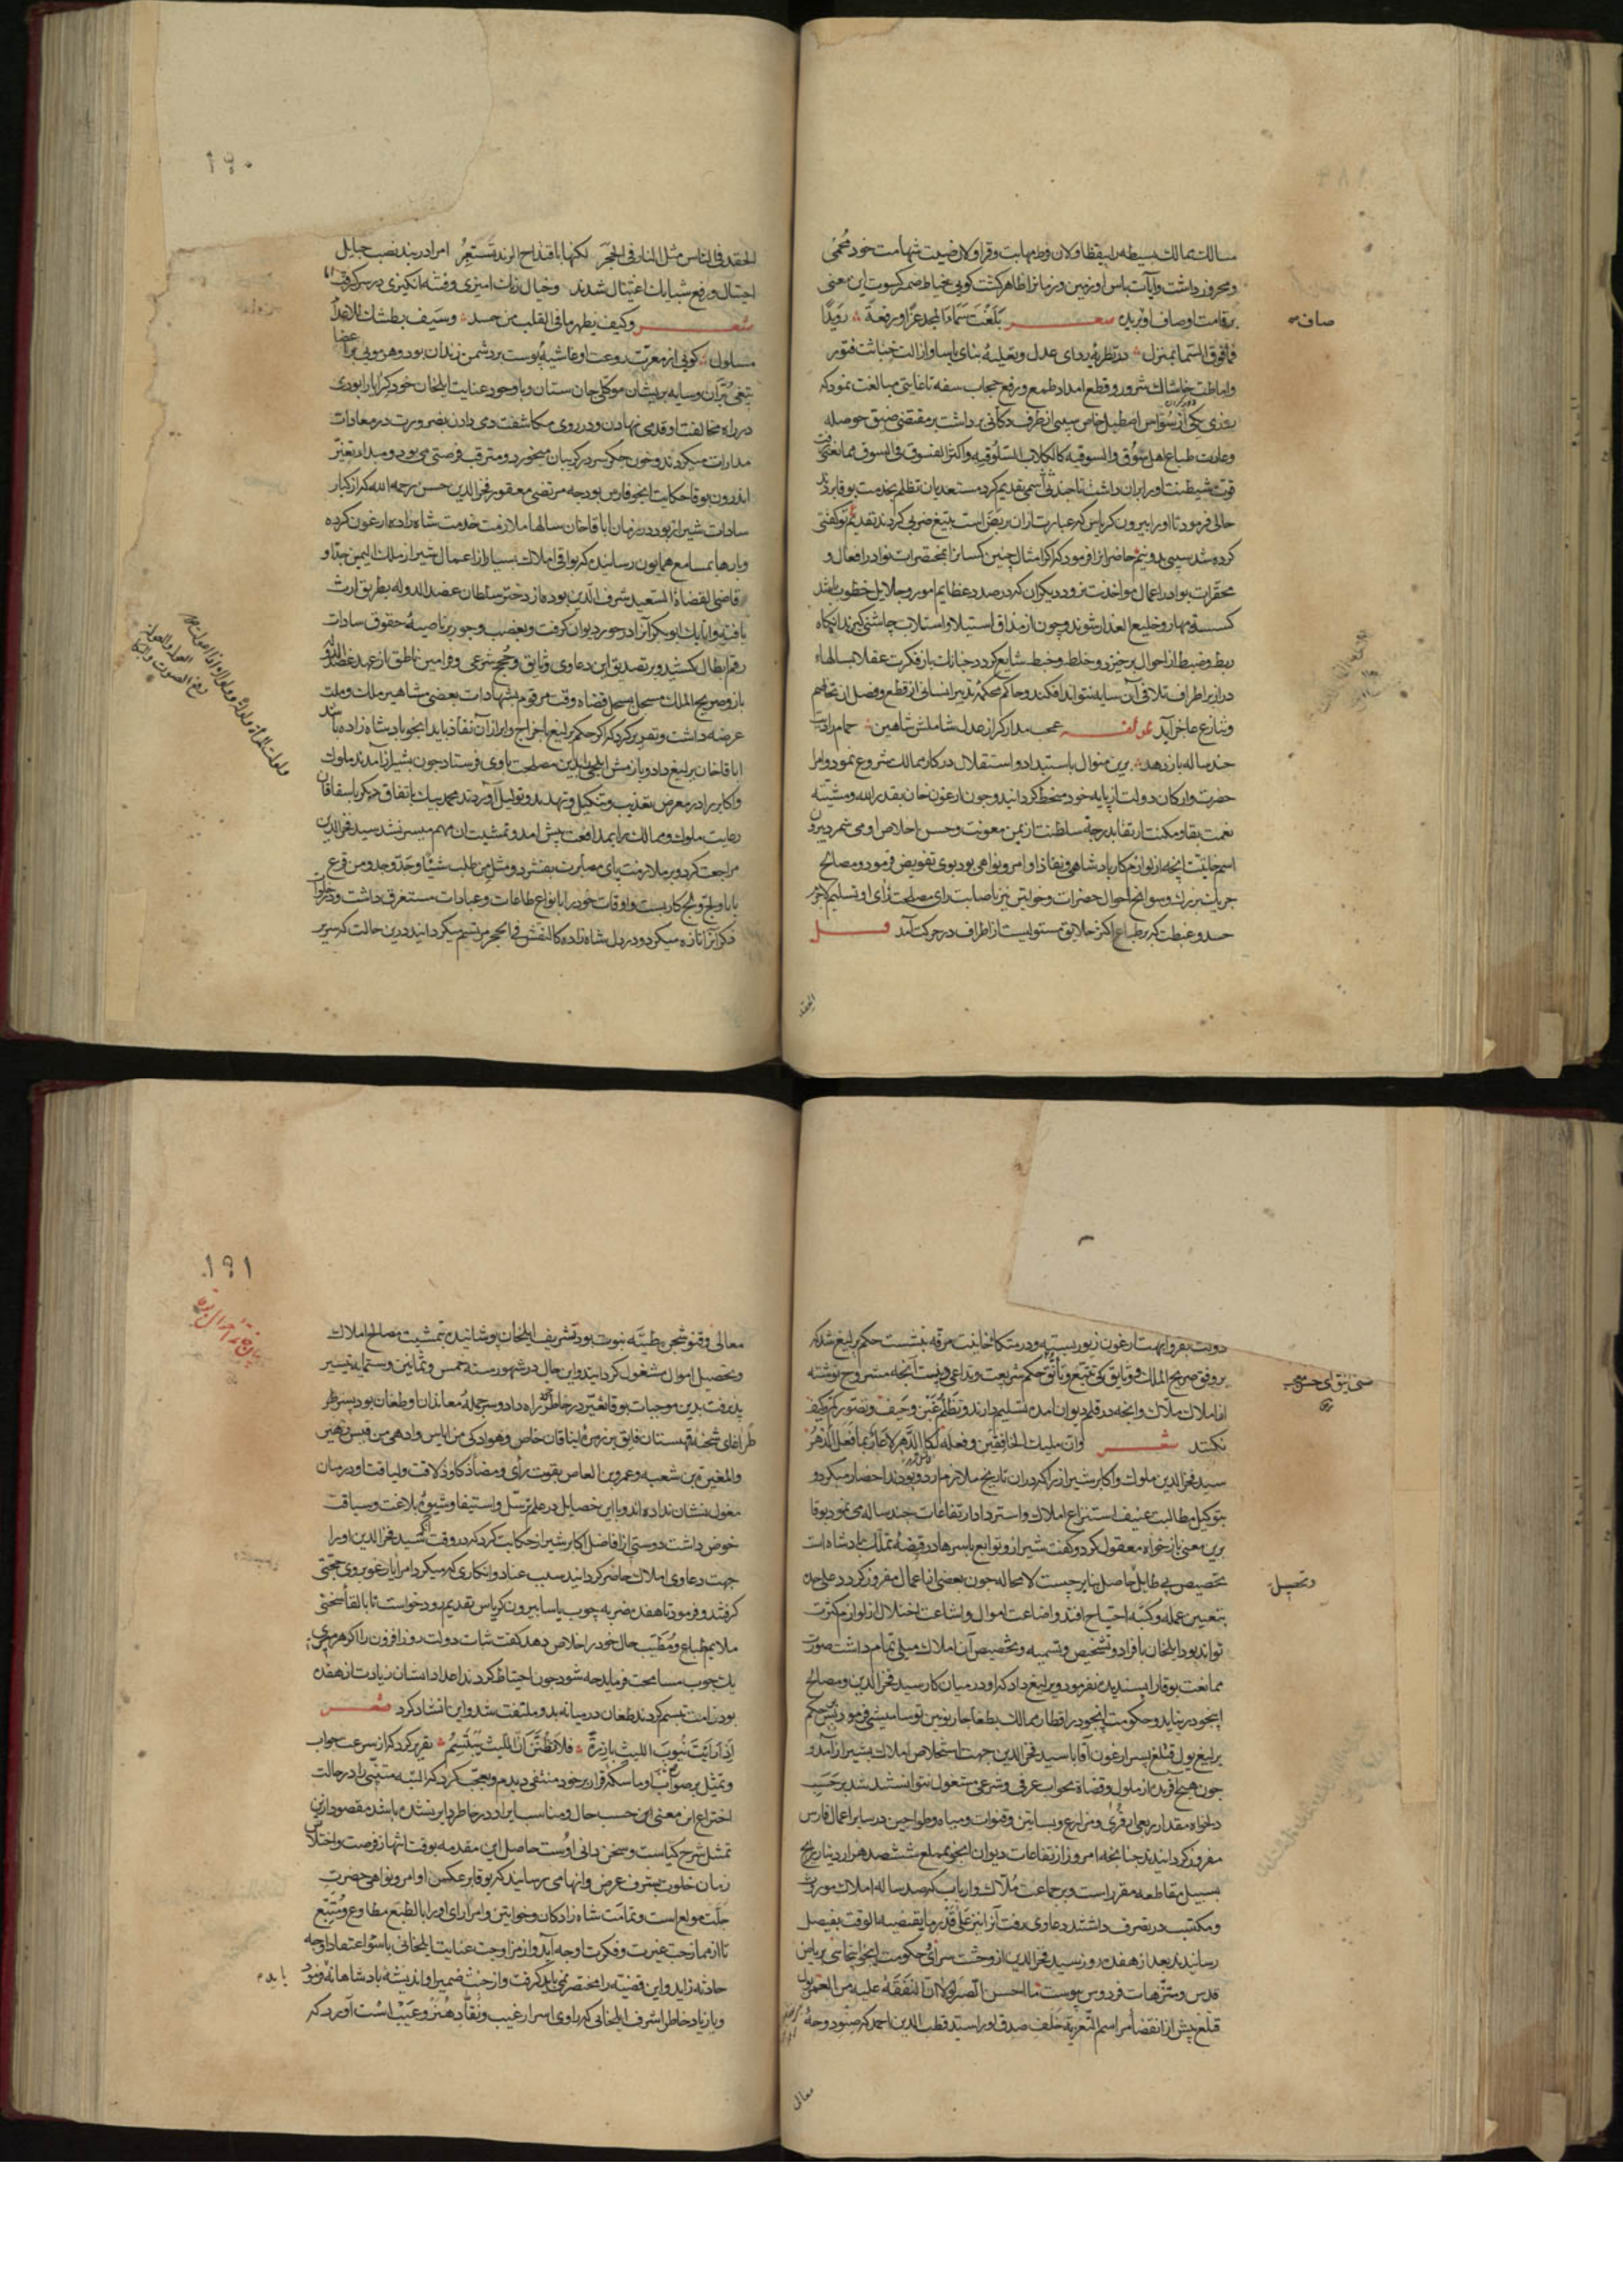 مسالك ممالك بسیطه را بیقظاولان و مهابت و قراولان صیت شهامت خود محمی
و محروز داشت و آیات باس او زمین و زمانرا ظاهر کشت کویی خیاط صنع کسوت این معنی
بر قامت اوصاف او بریده شعر بلغت سماء المجد عزا و رفعة رویدا
فما فوق السماء منزل در تطریهٔ ردای عدل و تعلیهٔ بنای یاسا و ازالت خباثت فتور
و اماطت خاشاك شرور و قطع امداد طمع و رفع حجاب سفه تا غایتی مبالغت نمود که
روزی یکی از سواس اصطبل خاص سیبی از طرف دکانی برداشت بر مقتضی ضیق حوصله
و عادت طباع اهل سوق والسوقیه کالکلاب السلوقیه و اکثر الفسوق فی السوق ممانعتی
حالی فرمود تا او را بیرون کریاس که عبارت ازان
کرده شد سیبی بدو نیم حاضرانرا فرمود که اکر امثال چنین کسانرا بمختصرات نوادر افعال و
محقرات بوادر اعمال مواخذت نرود دیکران که در صدد عظایم امور و جلایل خطوب باشند
کسسته مهار و خلیع العذار شوند و چون از مذاق استیلا و استلاب چاشنی کیرند آنکاه
ربط و ضبط از احوال برخیزد و خلط و خبط شایع کردد چنانك باز فکرت عقلا بسالهاء
دراز بر اطراف تلافی آن سایه نتواند افکند و حاکم محکمهٔ تدبیر انسانی از قطع و فصل آن تخاصم
و تنازع عاجز آید لمولفه عجب مدار که از عدل شاملش شاهین حمام را دیت
چند ساله باز دهد برین منوال باستبداد و استقلال در کار ممالك شروع نمود و امرا
حضرت و ارکان دولت از پایه خود منحط کردانید و چون ارغون خان بقدر الله و مشیته
نعمت بقا و مکنت ارتقا بدرجهٔ سلطنت از یمن معونت و حسن اخلاص او می شمرد بیرون
اسم خانیت آنچه از لوازم کار پادشاهی و نفاذ اوامر و نواهی بود بوی تفویض فرمود و مصالح
جریك بزرك و سوانح احوال حضرات و خواتین نیز باصابت رای مصلحت زای او تسلیم لاجرم
حسد و غبطت که بر طباع اکثر خلایق مستولیست از اطراف در حرکت آمد
الحقد
صاف
۱۹۰
الحقد فی الناس مثل النار فی الحجر لکنها باقتداح الزند تستعر امرا در بند نصب حبایل
احتیال و رفع شبایك اغتیال شدند و خیال رنك امیزی و فتنه انکیزی در سر کرفت اما
شعر وکیف یظهر ما فی القلب من حسد وسیف بطشك للاعداء
مسلول کویی از معرت روعت او غاشیهٔ پوست بر دشمن زندان بود و هر مویی بر اعضا
تیغی بران و سایه بریشان موکلی جان ستان و با وجود عنایت ایلخان خود کرا یارا بودی
در راه مخالفت او قدمی نهادن و در روی مکاشفت دمی دادن بضرورت در معادات
مدارات میکردند و خون جکر سر در کریبان میخورد و مترقب فرصتی می بود و مبدا تغیر
اندرون بوقا حکایت اینجو فارس بود چه مرتضی مغفور فخر الدین حسن رحمه الله که از کبار
سادات شیراز بود در زمان اباقاخان سالها ملازمت خدمت شاه زاده ارغون کرده
و بارها بمسامع همایون رسانیده که بواقی املاك بسیار از اعمال شیراز ملك الیمین جد او
قاضی القضاة السعید شرف الدین بوده از دختر سلطان عضد الدوله بطریق ارث
یافته و اتابك ابوبکر آنرا در حوز دیوان کرفت و بغصب و جور بر ناصیهٔ حقوق سادات
رقم ابطال کشید و بر تصدیق این دعاوی وثایق و حجج شرعی و فرامین ناطق از عهد عضد الدوله
باز و صریح الملك مسجل بسجل قضاه وقت مرقوم بشهادات بعضی مشاهیر ملك و ملت
عرضه داشت و تقریر کرد که اکر حکم یرلیغ باخراج و ابراز آن نفاذ یابد اینجو پادشاه زاده باشد
اباقاخان یرلیغ داد و بازمش ایلچی را بدین مصلحت با وی فرستاد چون بشیراز آمدند ملوك
و اکابر را در معرض تعذیب و تنکیل و تهدید و توکیل آوردند محمد بیك باتفاق دیکر باسقاقان
رعایت ملوك و ممالك را بمدافعت پیش امد و تمشیت ان مهم میسر نشد سید فخر الدین
مراجعت کرد و بر ملازمت پای مصابرت بیفشرد و مثل من طلب شیئا وجد وجد ومن قرع
بابا ولج ولج کار بست و اوقات خود را بانواع طاعات و عبادات مستغرق داشت و در خلوات
ذکر آنرا تازه میکرد و در دل شاه زاده کالنقش فی الحجر مرتسم میکردانید درین حالت که سریر
دولت بفر و ابهت ارغون زیور بسته و در متکا خانیت مرفه بنشست حکم یرلیغ شد که
بر وفق صریح الملك و وثایق که بتتبع و تانق حکم شریعت و تداعی و پست آنچه مشروح نوشته
از املاك ملاك و آنچه در قلم دیوان امده تسلیم دارند و تظلم غبن و حیف و تصور کم و کیف
نکنند شعر وان ملیك الخافقین وفعله لکالدهر لا عار بما فعل الدهر
سید فخر الدین ملوك و اکابر شیراز را که دران تاریخ ملازم اردو بودند احضار میکرد و
بتوکیل مطالبت عنیف استنزاع املاك و استرداد ارتفاعات چند ساله می نمود بوقا
برین معنی باز خواه معقول کرد و کفت شیراز و توابع باسرها در قبضهٔ تملك پادشاه است
تخصیص بی طایل حاصل بنا بر چیست لامحاله چون بعضی از اعمال مفروز کردد علی حده
بتعیین عمله و کتبه احتیاج افتد و اضاعت اموال و اشاعت اختلال از لوازم کثرت
تواند بود ایلخان بافراد و تشخیص و تسمیه و تخصیص آن املاك میلی تمام داشت صورت
ممانعت بوقا را پسندیده نفرمود و یرلیغ داد که او در میان کار سید فخر الدین و مصالح
اینجو در نیاید و حکومت اینجو در اقطار ممالك بطغاجار نویین توسامیشی فرمود پس حکم
یرلیغ بول قتلغ پسر ارغون آقا با سید فخر الدین جهت استخلاص املاك بشیراز آمد و
چون هیچ آفریده از ملوك و قضاة بجواب عرفی و شرعی مشغول نتوانستند شد بر حسب
دلخواه مقدار ربعی از قری و مزارع و بساتین و قنوات و میاه و طواحین در سایر اعمال فارس
مفروز کردانیدند چنانچه امروز از ارتفاعات دیوان اینجو بمبلغ ششصد هزار دینار رایج
بسبیل مقاطعه مقرر است و بر جماعت ملاك و ارباب که صد ساله املاك موروث
و مکتسب در تصرف داشتند دعاوی رفت آنرا نیز علی قدر ما یقتضیه الوقت بفیصل
رسانیدند بعد از هفده روز سید فخر الدین از وحشت سرای حکومت اینجو
قدس و متنزهات فردوس پیوست ما احسن الصبر لولا ان النفقة علیه من العمر بول
قتلغ پیش از انقضاء مراسم التعزیه خلف صدق او را سید قطب الدین احمد که صنو دوحهٔ
معالی
و تحصیل
۱۹۱
معالی و قنو شجن طیبه نبوت بود تشریف ایلخان پوشانیده بتمشیت مصالح املاك
و تحصیل اموال مشغول کردانید و این حال در شهور سنه خمس و ثمانین و ستمایه تیسیر
پذیرفت بدین موجبات بوقا تغیر در خاطر راه داد و سر جملهٔ معاندان او طغان بود پسر طر
طراغای شحنهٔ قهستان فایق بر زمرهٔ ایناقان خاص و هو اذکی من ایاس وادهی من قیس زهیر
والمغیرة بن شعبه وعمرو بن العاص بقوت رای و مضاء ذکا و ذلاقت و لباقت او در میان
مغول نشان نداده اند و با این خصایل در علم ترسل و استیفا و شیوهٔ بلاغت و سیاقت
خوض داشت دوستی از افاضل اکابر شیراز حکایت کرد که در وقت آنك سید فخر الدین او را
جهت دعاوی املاك حاضر کردانید سبب عناد و انکاری که میکرد امرا یارغو بر وی حجتی
کرفتند و فرمود تا هفده ضربه چوب یاسا بیرون کریاس تقدیم رود خواست تا بالقاء سخنی
ملایم طباع و مطیب حال خود را خلاص دهد کفت شات دولت روز افزون را اکر هر
یك چوب مسامحت فرماید چه شود چون احتیاط کردند اعداد ایشان زیادت از هفده
بود زامت تبسم کردند طغان در میانه بدو ملتفت شد و این انشاد کرد شعر
اذا رایت نیوب اللیث بارزة فلا تظنن ان اللیث یبتسم تقریر کرد که از سرعت جواب
و تمثل بر صواب او ماسکهٔ قرار بر خود منتفی دیدم و تعجب کرد که البته متنبی را در حالت
اختراع این معنی این حسب حال و مناسب ایراد در خاطر دایر نشده باشد مقصود ازین
تمثل شرح کیاست و سخن دانی اوست حاصل این مقدمه بوقت انتهاز فرصت و اختلاس
زمان خلوت بشرف عرض و انهامی رسانید که بوقا بر عکس اوامر و نواهی حضرت
جلت مولع است و تمامت شاه زادکان و خواتین و امرا رای او را بالطبع مطاوع و متتبع
حادثه زاید و این قضیه را مختصر نمی باید کرفت و از خبث ضمیر او اندیشهٔ پادشاهانه فرمود
و باز یاد خاطر اشرف ایلخانی که راوی اسرار غیب و نقاد هنر و عیب است آورد که
باید